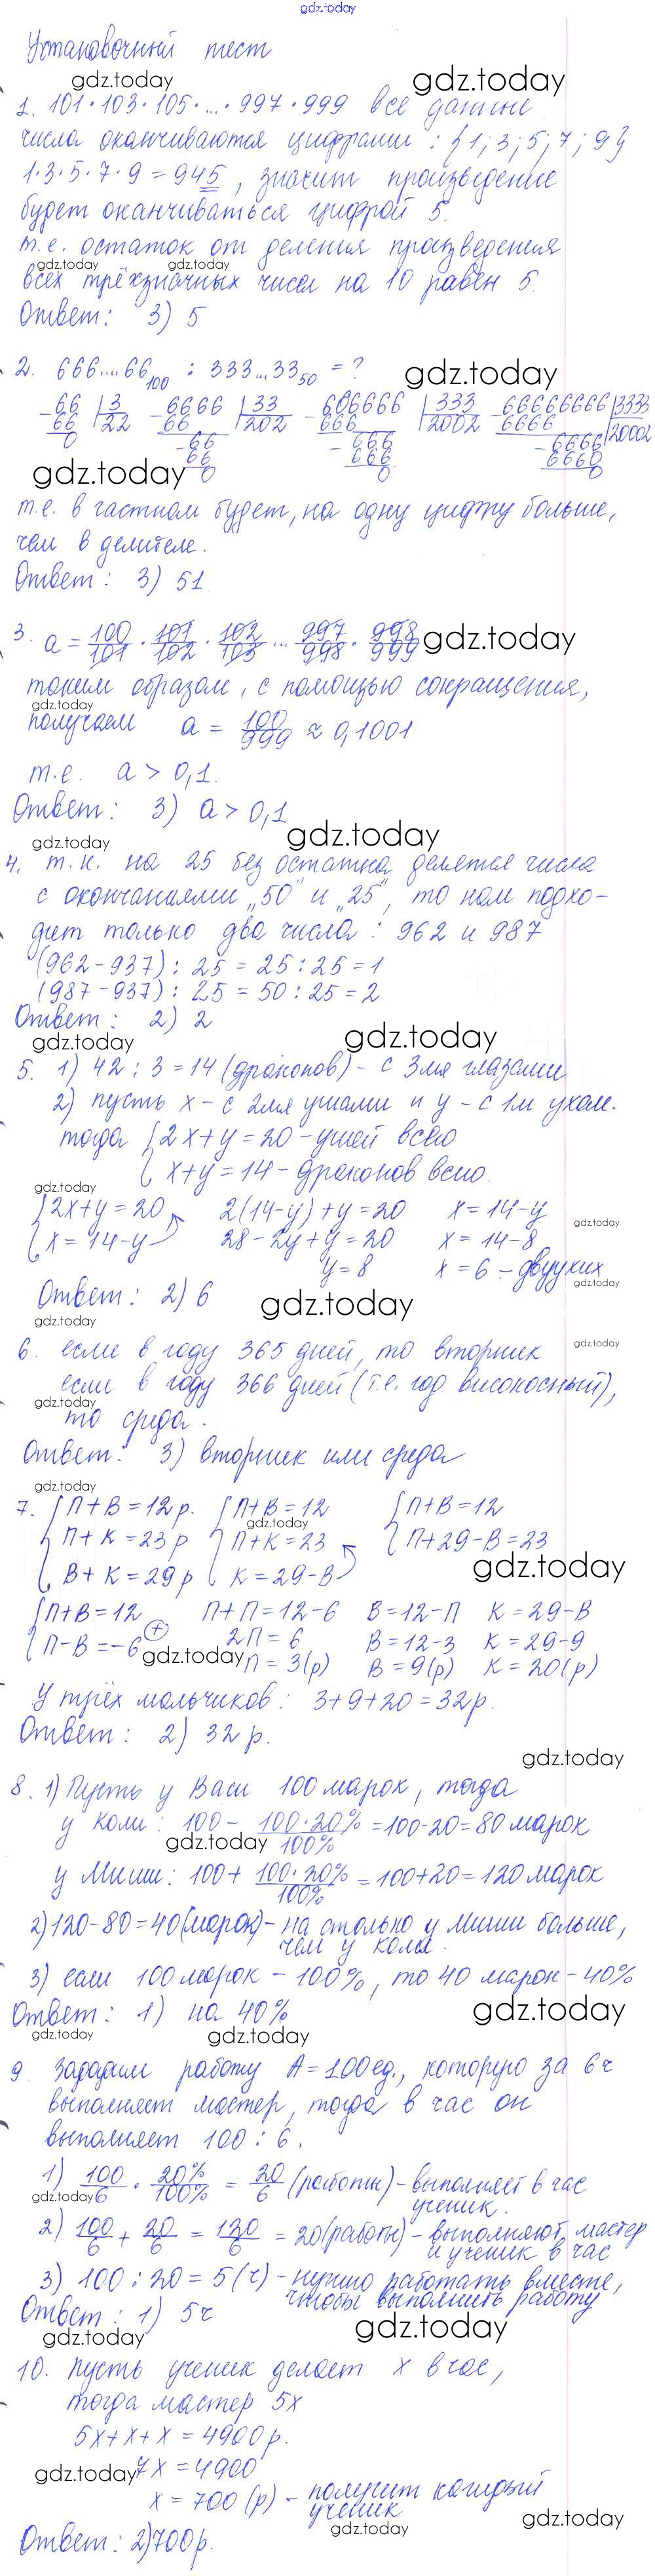 gdz.today
Установочный тест
gdz.today gdz.today
1. 101·103·105·...·997·999 все данные
числа оканчиваются цифрами: {1; 3; 5; 7; 9}
1·3·5·7·9 = 945, значит произведение
будет оканчиваться цифрой 5.
т.е. остаток от деления произведения
gdz.today gdz.today
всех трёхзначных чисел на 10 равен 5.
Ответ: 3) 5
2. 666....66₁₀₀ : 333...33₅₀ = ? gdz.today
-66 |3 -6666 |33 -666666 |333 -66666666 |3333
66 |22 66 |202 666 |2002 6666 |20002
0 -66 -666 -6666
66 666 6660
gdz.today 0 0 0
т.е. в частном будет, на одну цифру больше,
чем в делителе.
Ответ: 3) 51
3. a = 100/101 · 101/102 · 102/103 ... 997/998 · 998/999 gdz.today
таким образом, с помощью сокращения,
gdz.today
получаем a = 100/999 ≈ 0,1001
т.е. a > 0,1.
Ответ: 3) a > 0,1
gdz.today gdz.today
4. т.к. на 25 без остатка делятся числа
с окончаниями „50" и „25", то нам подхо-
дит только два числа: 962 и 987
(962-937) : 25 = 25 : 25 = 1
(987-937) : 25 = 50 : 25 = 2
Ответ: 2) 2
gdz.today gdz.today
5. 1) 42 : 3 = 14 (драконов) - с 3мя глазами
2) пусть x - с 2мя ушами и y - с 1м ухом.
тогда {2x+y=20 - ушей всего
x+y=14 - драконов всего.
gdz.today
{2x+y=20 2(14-y)+y=20 x=14-y
gdz.today
x=14-y 28-2y+y=20 x=14-8
y=8 x=6 - двуухих
gdz.today
Ответ: 2) 6 gdz.today
gdz.today
6. если в году 365 дней, то вторник gdz.today
если в году 366 дней (т.е. год високосный),
gdz.today
то среда.
Ответ: 3) вторник или среда
gdz.today
7. {П+В=12р. {П+В=12 {П+В=12
gdz.today
П+К=23р П+К=23 П+29-В=23
В+К=29р К=29-В gdz.today
{П+В=12 П+П=12-6 В=12-П К=29-В
П-В=-6 + 2П=6 В=12-3 К=29-9
gdz.today П=3(р) В=9(р) К=20(р)
У трёх мальчиков: 3+9+20=32р.
Ответ: 2) 32р.
gdz.today
8. 1) Пусть у Васи 100 марок, тогда
у Коли: 100 - 100·20%/100% = 100-20=80 марок
gdz.today
у Миши: 100 + 100·20%/100% = 100+20=120 марок
2) 120-80=40(марок) - на столько у Миши больше,
чем у Коли.
3) если 100 марок - 100%, то 40 марок - 40%
Ответ: 1) на 40% gdz.today
gdz.today gdz.today
9. Зададим работу A=100ед., которую за 6ч
выполняет мастер, тогда в час он
выполняет 100 : 6.
1) 100/6 · 20%/100% = 20/6 (работы) - выполняет в час
gdz.today ученик.
2) 100/6 + 20/6 = 120/6 = 20(работы) - выполняют мастер
и ученик в час
3) 100 : 20 = 5(ч) - нужно работать вместе,
чтобы выполнить работу
Ответ: 1) 5ч
gdz.today gdz.today
10. пусть ученик делает x в час,
тогда мастер 5x
5x+x+x = 4900р.
gdz.today 7x = 4900
x = 700 (р) - получит каждый
ученик
gdz.today gdz.today
Ответ: 2) 700р.